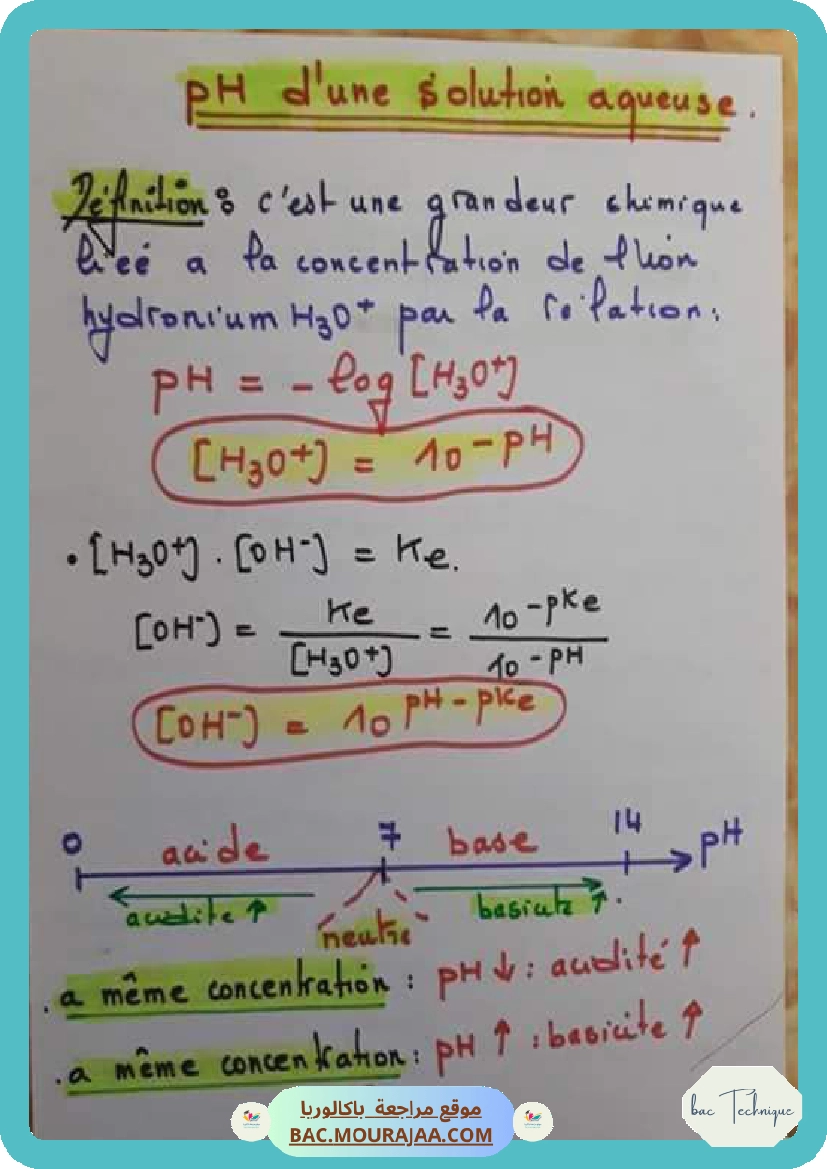 pH d'une solution aqueuse.
Définition : c'est une grandeur chimique
liéé a la concentration de l'ion
hydronium H3O+ par la rélation:
pH = - log [H3O+]
[H3O+] = 10^-pH
• [H3O+] . [OH-] = Ke.
[OH-] = Ke / [H3O+] = 10^-pKe / 10^-pH
[OH-] = 10^pH - pKe
0 acide 7 base 14 pH
acidité ↑ neutre basicité ↑.
. a même concentration : pH ↓ : acidité ↑
. a même concentration : pH ↑ : basicité ↑
موقع مراجعة باكالوريا
BAC.MOURAJAA.COM
bac Technique